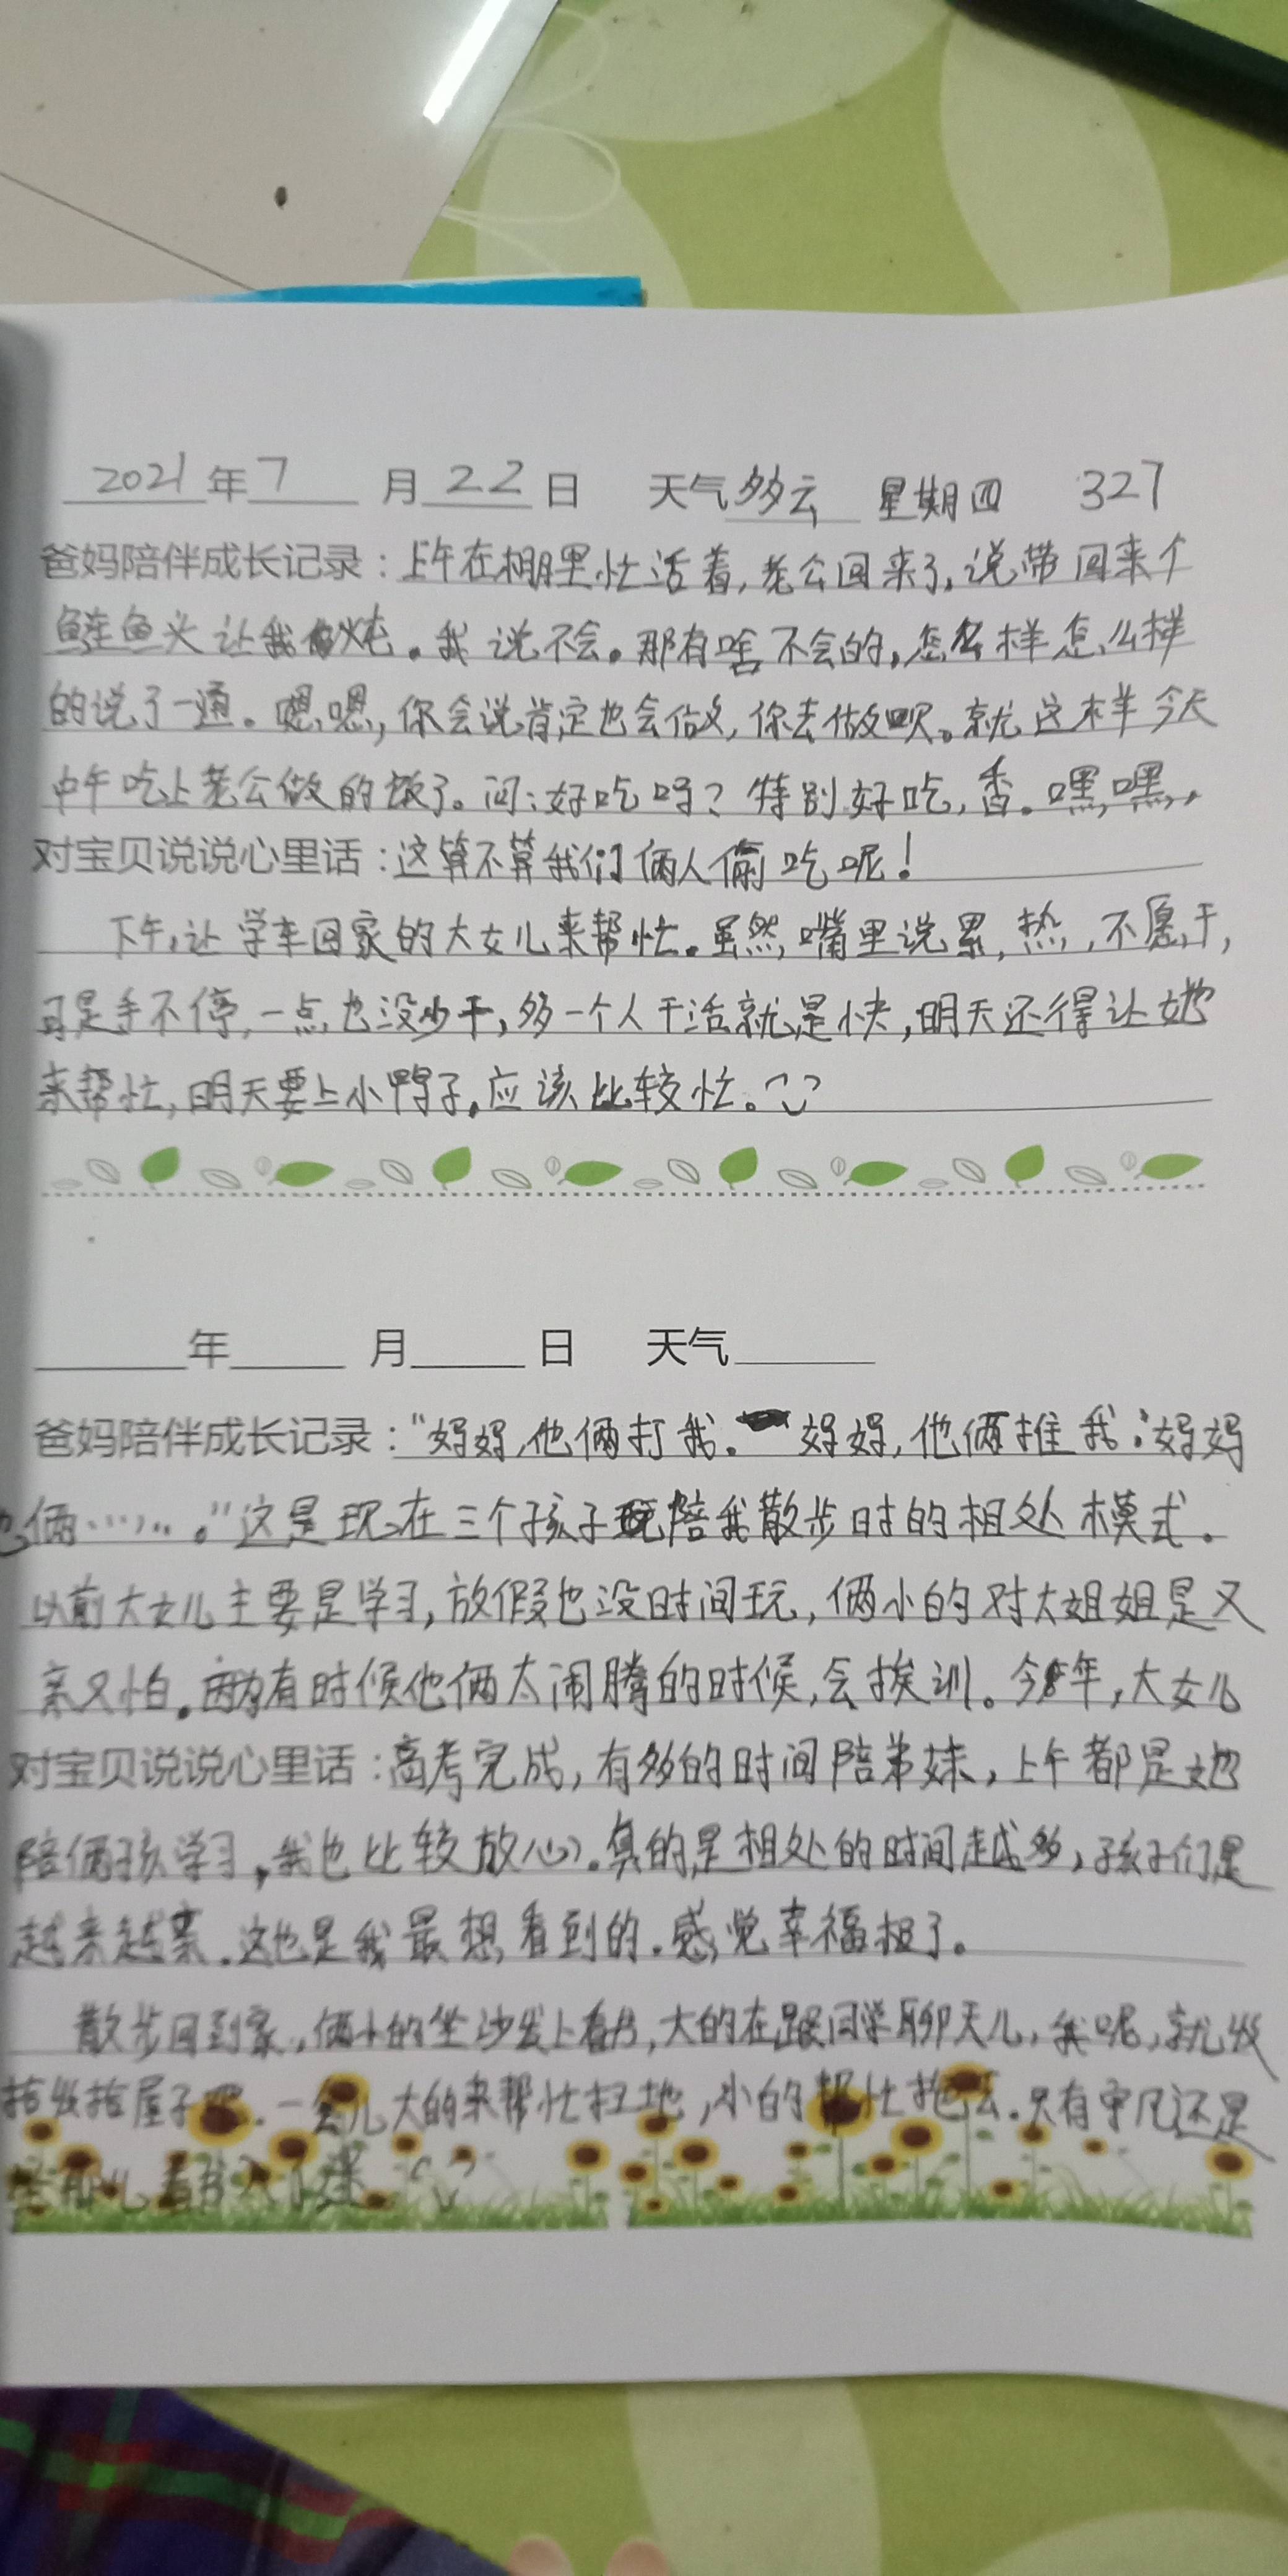 2021年7月22日 天气多云 星期四 327
爸妈陪伴成长记录:上午在棚里忙活着,老公回来了,说带回来个
鲢鱼头让我炖。我说不会。那有啥不会的,怎么样怎么样
的说了一通。嗯嗯,你会说肯定也会做,你去做呗。就这样今天
中午吃上老公做的饭了。问:好吃吗?特别好吃,香。嘿嘿,
对宝贝说说心里话:这算不算我们俩人偷吃呢!
下午,让学车回家的大女儿来帮忙。虽然嘴里说累,热,不愿干,
可是手不停,一点也没少干,多一个人干活就是快,明天还得让她
来帮忙,明天要上小鸭子,应该比较忙。
年 月 日 天气
爸妈陪伴成长记录:"妈妈,他俩打我。妈妈,他俩推我:妈妈
他俩……。"这是现在三个孩子陪我散步时的相处模式。
以前大女儿主要是学习,放假也没时间玩,俩小的对大姐姐是又
亲又怕。因为有时候他俩太闹腾的时候,会挨训。今年,大女儿
对宝贝说说心里话:高考完成,有多的时间陪弟妹,上午都是她
陪俩孩学习,我也比较放心。真的是相处的时间越多,孩子们是
越来越亲.这也是我最想看到的.感觉幸福极了。
散步回到家,俩小的坐沙发上看书,大的在跟同学聊天儿,我呢,就收
拾收拾屋子吧.一会儿大的来帮忙扫地,小的帮忙拖去.只有宇凡还是
那儿看书入了迷